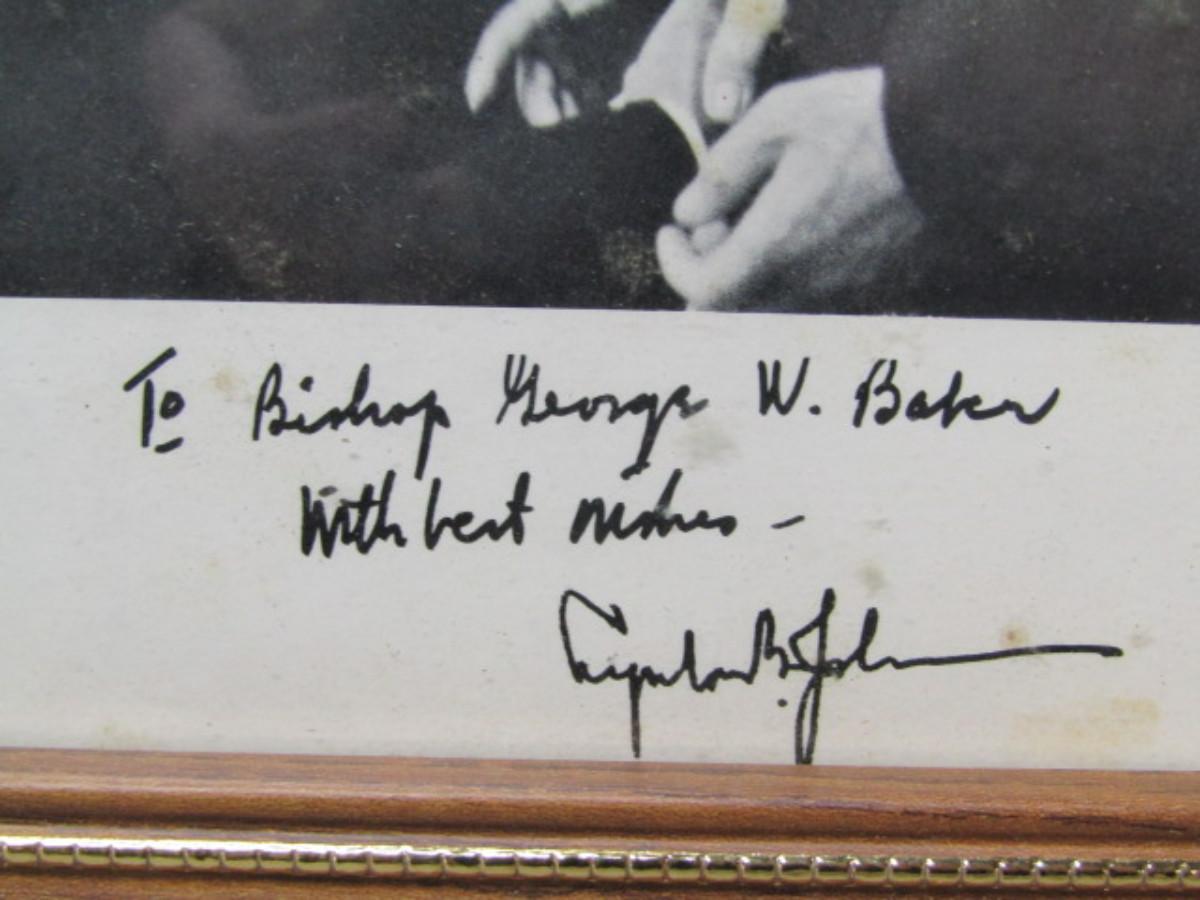 To Bishop George W. Baker
With best wishes -
Lyndon B. Johnson